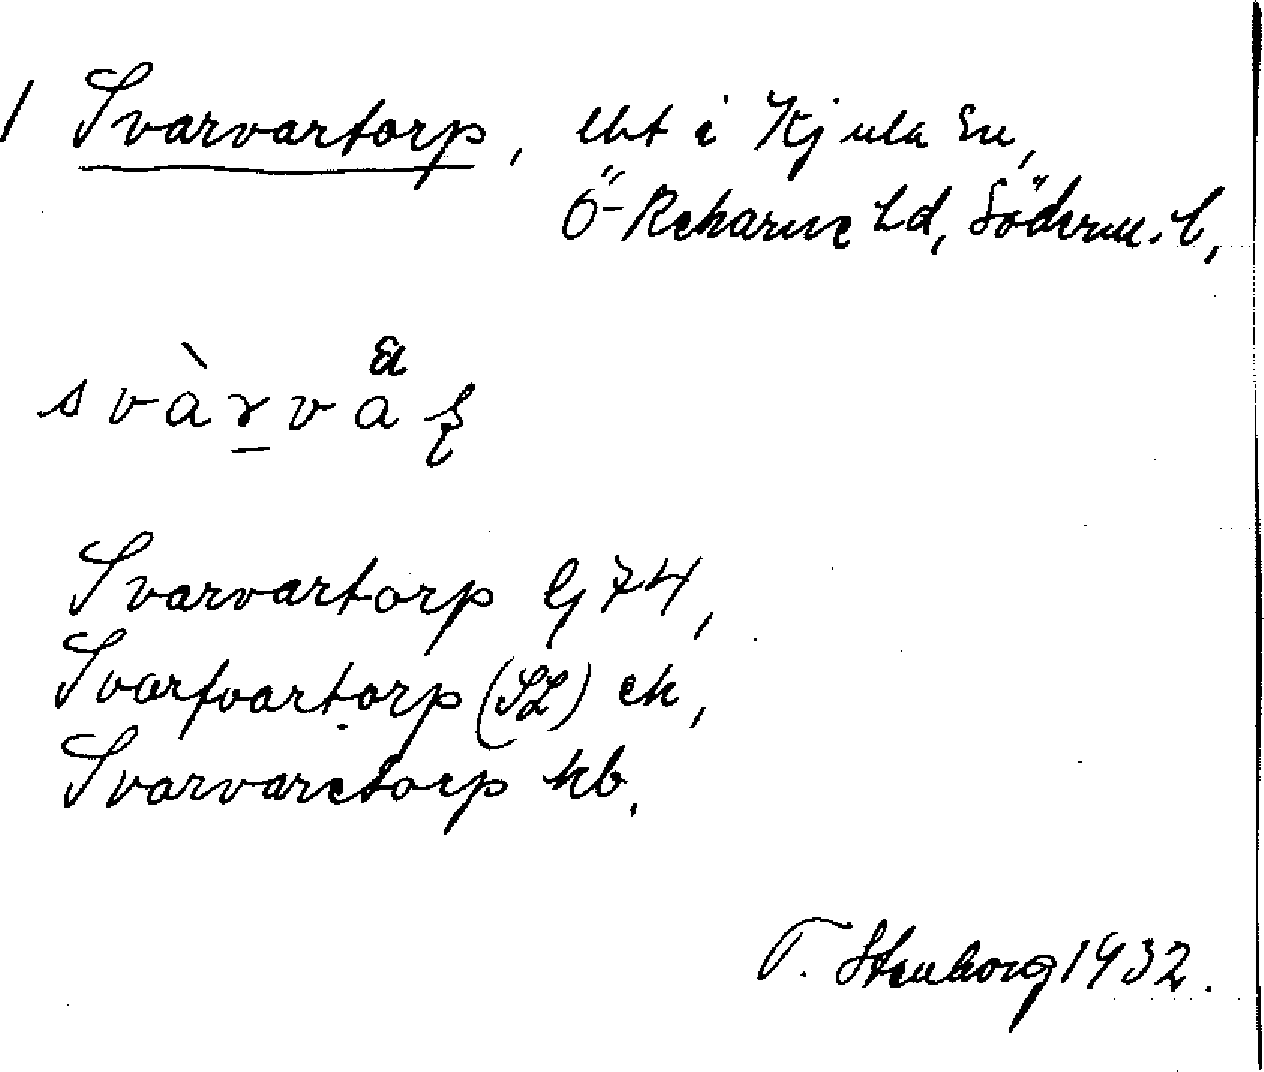 1 Svarvartorp, lht i Kjula sn,
Ö-Rekarne hd, Söderm. l,
svàrva
Svarvartorp G 74,
Svarfvartorp (SL) ek,
Svarvaretorp kb.
T. Stenborg 1932.